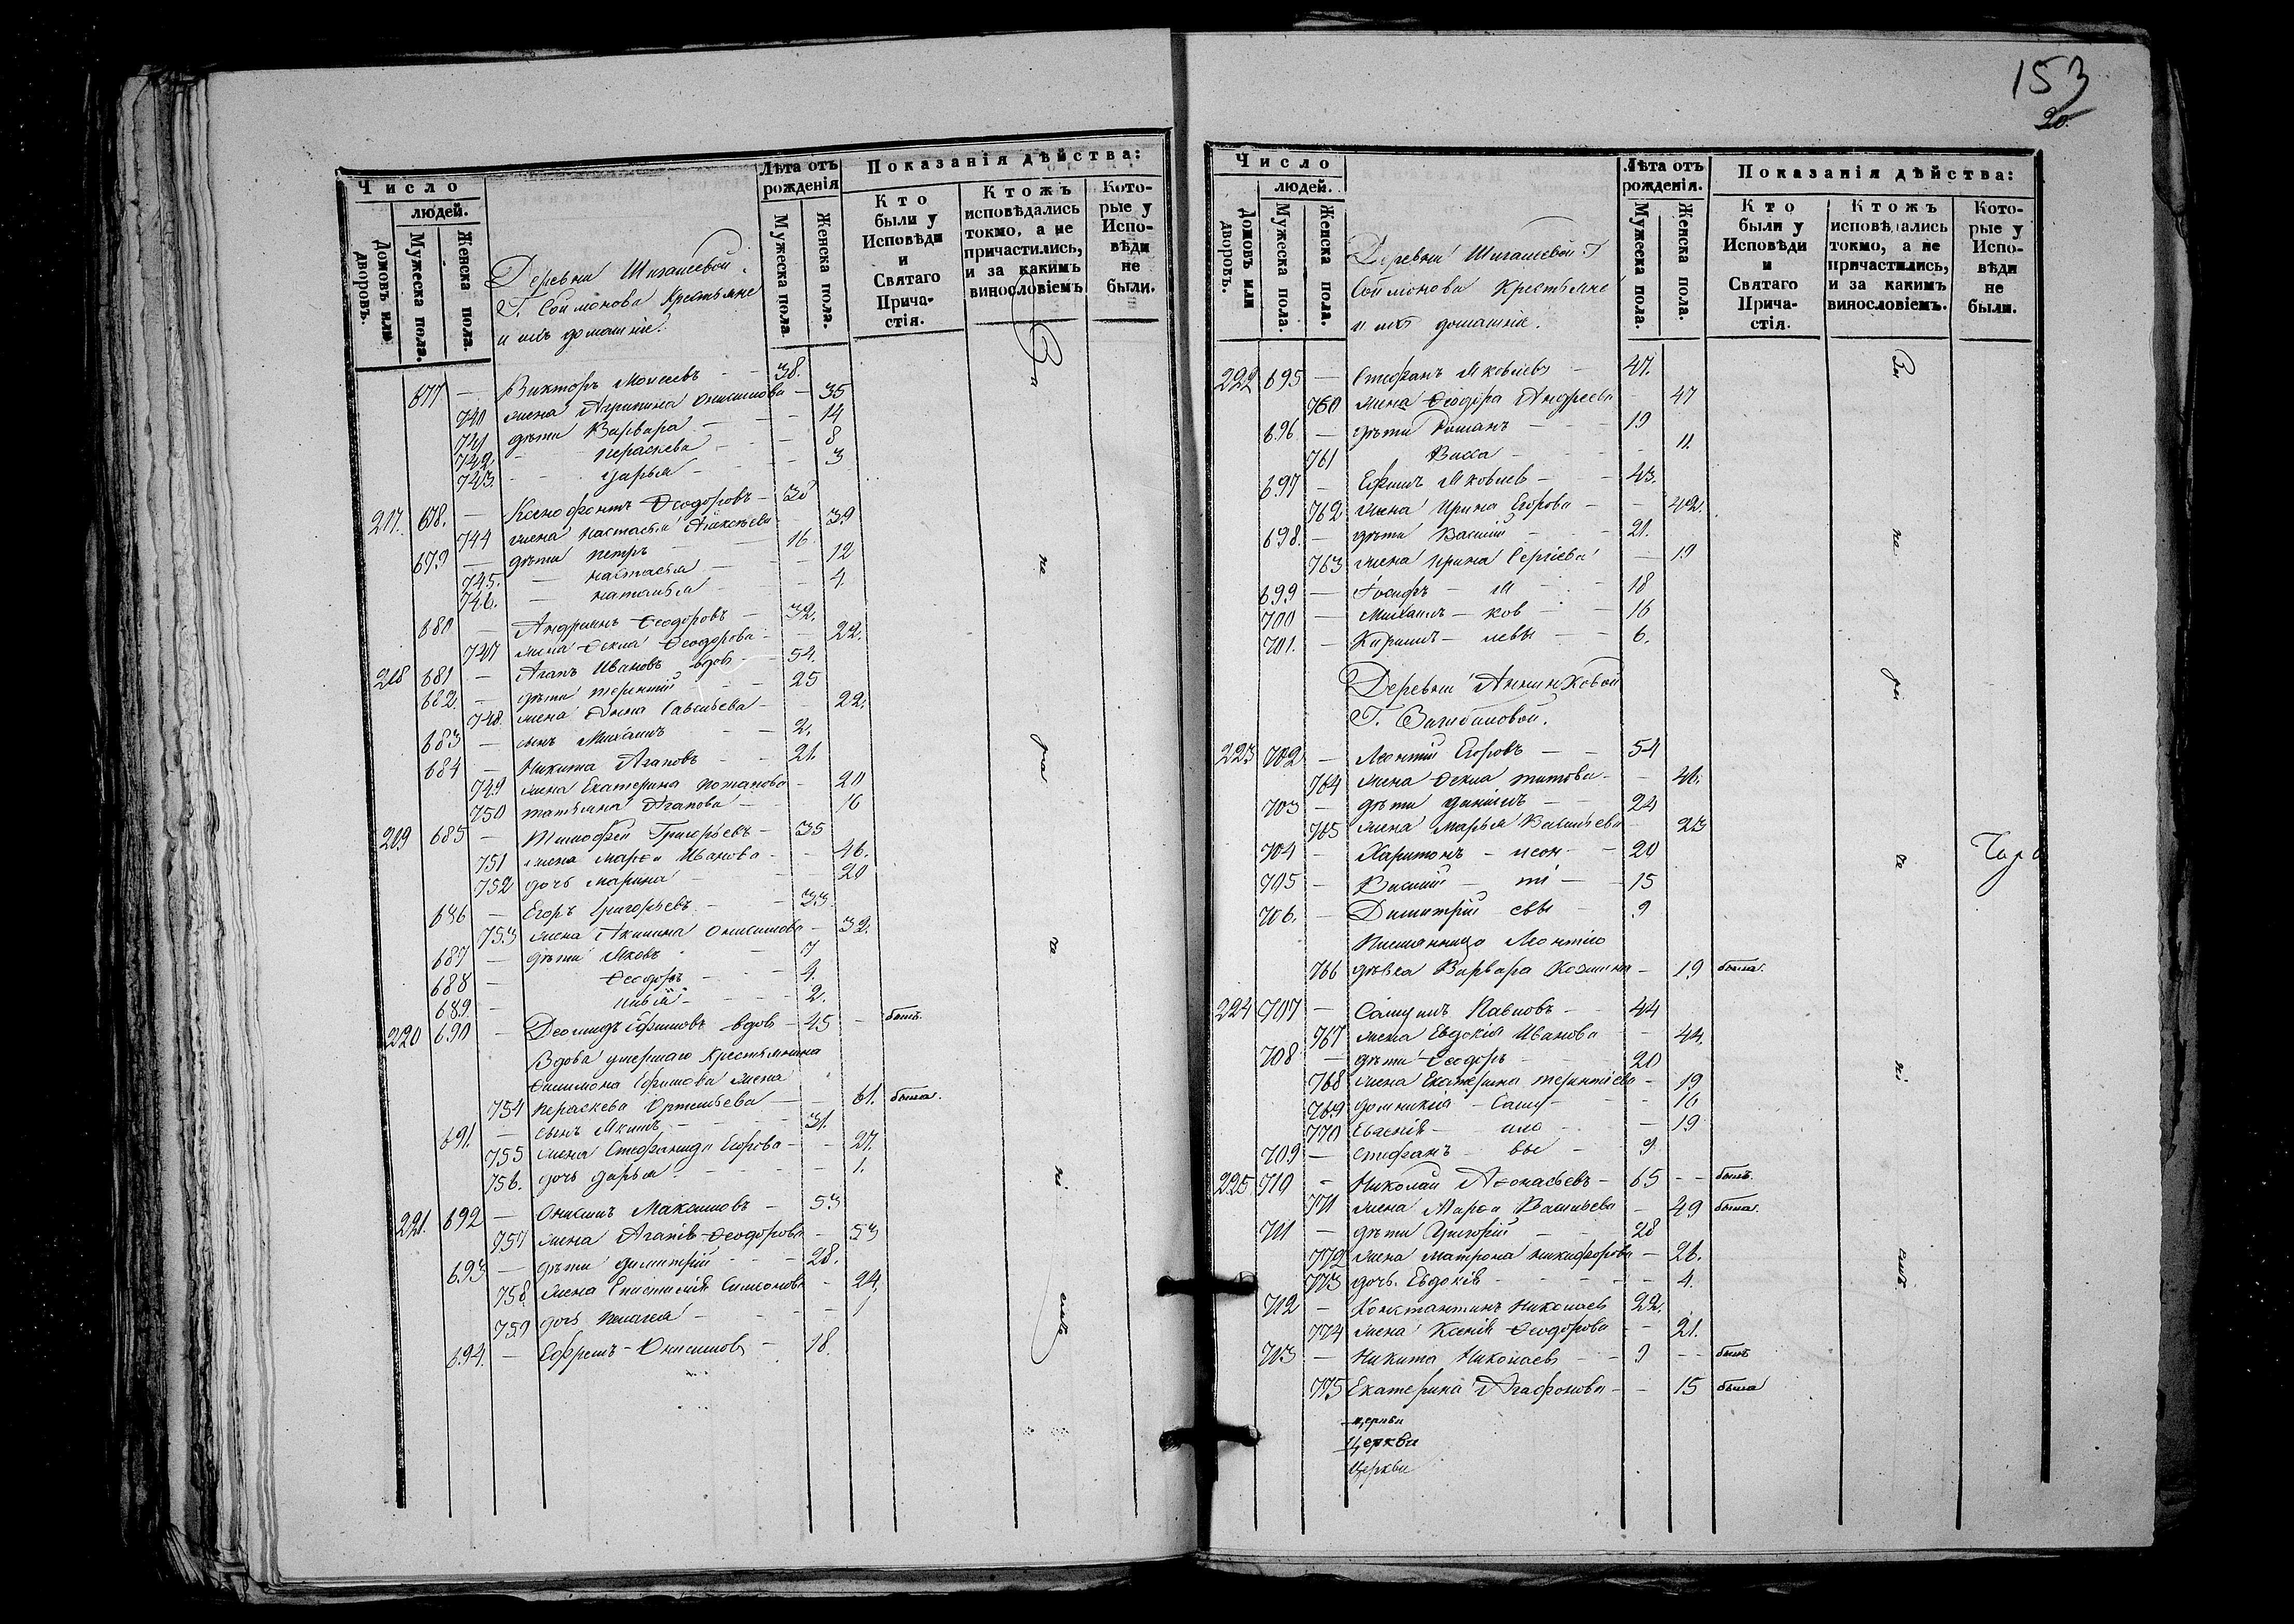 153
20.
Число
людей.
Домовъ или дворовъ.
Мужеска пола.
Женска пола.
Деревни Шигаевой
Г. Соймонова Крестьяне
и ихъ домашніе.
Лѣта отъ рожденія
Мужеска пола.
Женска пола.
Показанія дѣйства:
Кто были у Исповѣди и Святаго Прича-стія.
Ктожъ исповѣдались токмо, а не причастились, и за какимъ винословіемъ
Кото-рые у Испо-вѣди не были.
677 — Викторъ Моисеевъ — 38.
740 жена Агрипина Онисимова — 35
741 дѣти Варвара — — 14
742. — Параскева — — 8
743 — Дарья — — 3
217. 678. — Ксенофонтъ Ѳеодоровъ — 38
744 жена Настасья Алексѣева — 39
679 — дѣти Петръ — 16.
745. — Настасья — 12
746. — Наталья — 4
680 — Андріянъ Ѳеодоровъ — 32.
747 жена Ѳекла Ѳеодорова — 22.
218 681 — Агапъ Ивановъ вдов — 54.
682. — дѣти Терентій — 25
748. жена Анна Савельева — 22.
683 — сынъ Михаилъ — 2.
684 — Никита Агаповъ — 21.
749 жена Екатерина Потапова — 20
750 Татьяна Агапова — 16
219 685 — Тимофей Григорьевъ — 35
751 жена Марѳа Иванова — 46.
752 дочь Марина — 20
686 — Егоръ Григорьевъ — 33
753 жена Акилина Онисимова — 32.
687 — дѣти Яковъ — 7
688 — Ѳеодоръ — 4.
689 — — 2.
220 690 — Деомидъ Ефимовъ вдов — 45 — былъ.
Вдова умершаго Крестьянина
Филимона Ефимова жена
754 Параскева Артемьева — 61. была.
691. — сынъ Якимъ — 31.
755 жена Стефанида Егорова — 27.
756. дочь Дарья — 1.
221. 692 — Онисимъ Максимовъ — 53
757 жена Агапія Ѳеодорова — 53
693 — дѣти Димитрій — 28.
758. жена Епистимія Симонова — 24.
759 дочь Пелагея — 1
694. — Ефремъ Онисимовъ — 18.
За не ра че ні емъ
Число
людей.
Домовъ или дворовъ.
Мужеска пола.
Женска пола.
Деревни Шигаевой Г.
Соймонова Крестьяне
и ихъ домашніе.
Лѣта отъ рожденія.
Мужеска пола.
Женска пола.
Показанія дѣйства:
Кто были у Исповѣди и Святаго Прича-стія.
Ктожъ исповѣдались токмо, а не причастились, и за какимъ винословіемъ.
Кото-рые у Испо-вѣди не были.
222 695 — Стефанъ Яковлевъ — 47.
760 жена Ѳеодора Андреева — 47
696 — дѣти Романъ — 19
761 Васса — 11.
697 — Ефимъ Яковлевъ — 43.
762 жена Ирина Егорова — 42.
698. — дѣти Василій — 21.
763 жена Ирина Сергіева — 19
699 — Іосифъ — Я — 18
700 — Михаилъ — ков — 16
701. — Кирилъ — левы — 6.
Деревни Аннинковой
Г.
223 702 — Леонтій Егоровъ — 54
764 жена Ѳекла Титова — 46.
703 — дѣти Данилъ — 24
765 жена Марья Васильева — 23
704 — Харитонъ — Леон — 20
705 — Василій — ті — 15
706. — Димитрій евы — 9
Племянница Леонтію
766 дѣвка Варвара Козмина — 19 была.
224 707 — Самуилъ Павловъ — 44
767 жена Евдокія Иванова — 44.
708 — дѣти Ѳеодоръ — 20
768 жена Екатерина Терентіева — 19
769 Домникія — Саму — 16
770 Евгенія — ило — 19
709 — Стефанъ — вы — 9.
225 710 — Николай Аѳонасьевъ — 65 — былъ.
771 жена Марѳа Васильева — 49 была.
711 — дѣти Григорій — 28
772 жена Матрона Никифорова — 26.
773 дочь Евдокія — 4.
712 — Константинъ Николаевъ 22.
774 жена Ксенія Ѳеодорова — 21.
713 — Никита Николаевъ — 9 — былъ
775 Екатерина Агафонова — 15 была
церкви
Церкви
Церкви
За не ра че ні емъ.